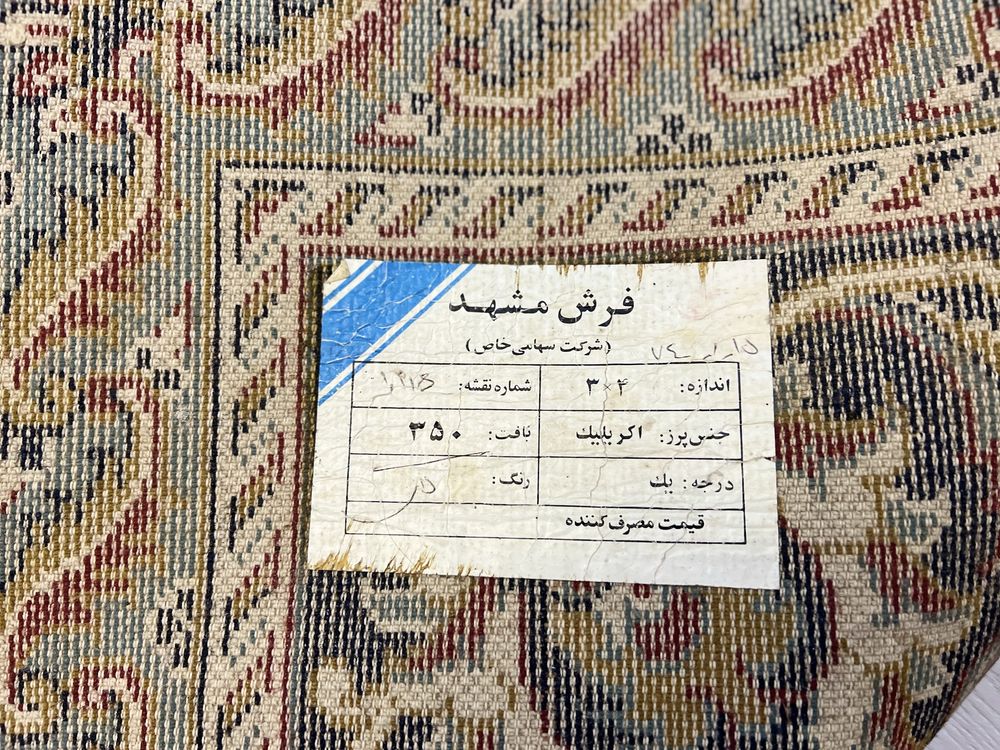 فرش مشهد
(شرکت سهامی خاص)
اندازه: ۳×۴ شماره نقشه:
جنس پرز: اکریلیک بافت: ۳۵۰
درجه: یک رنگ:
قیمت مصرف کننده